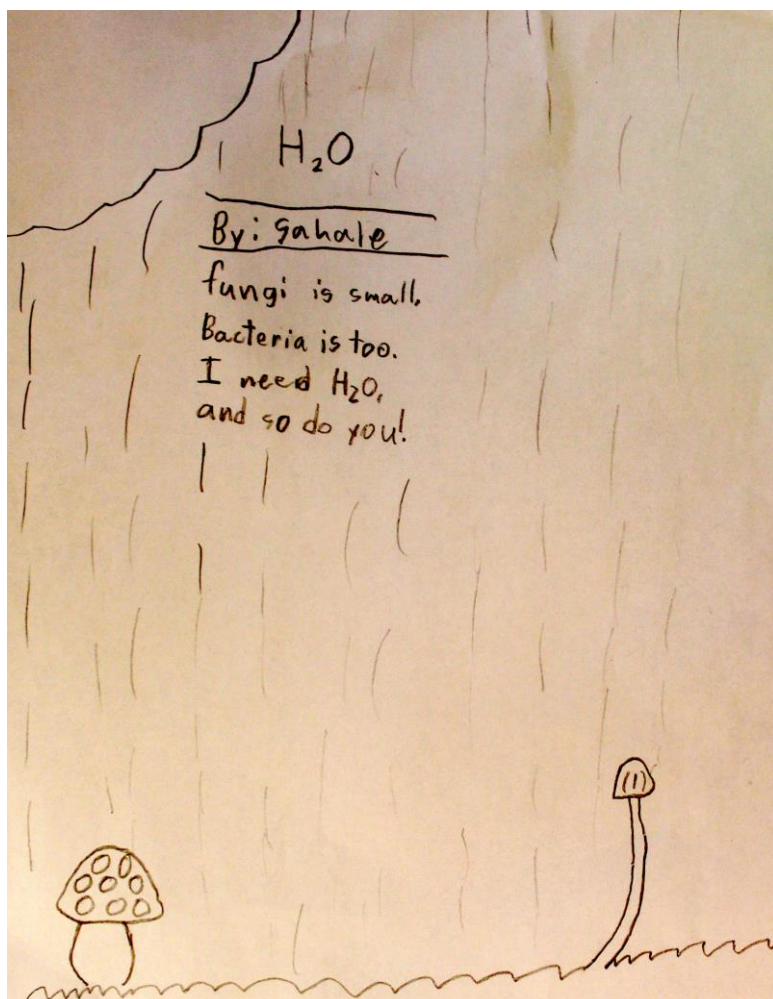 H₂O
By: Sahale
fungi is small,
Bacteria is too.
I need H₂O,
and so do you!